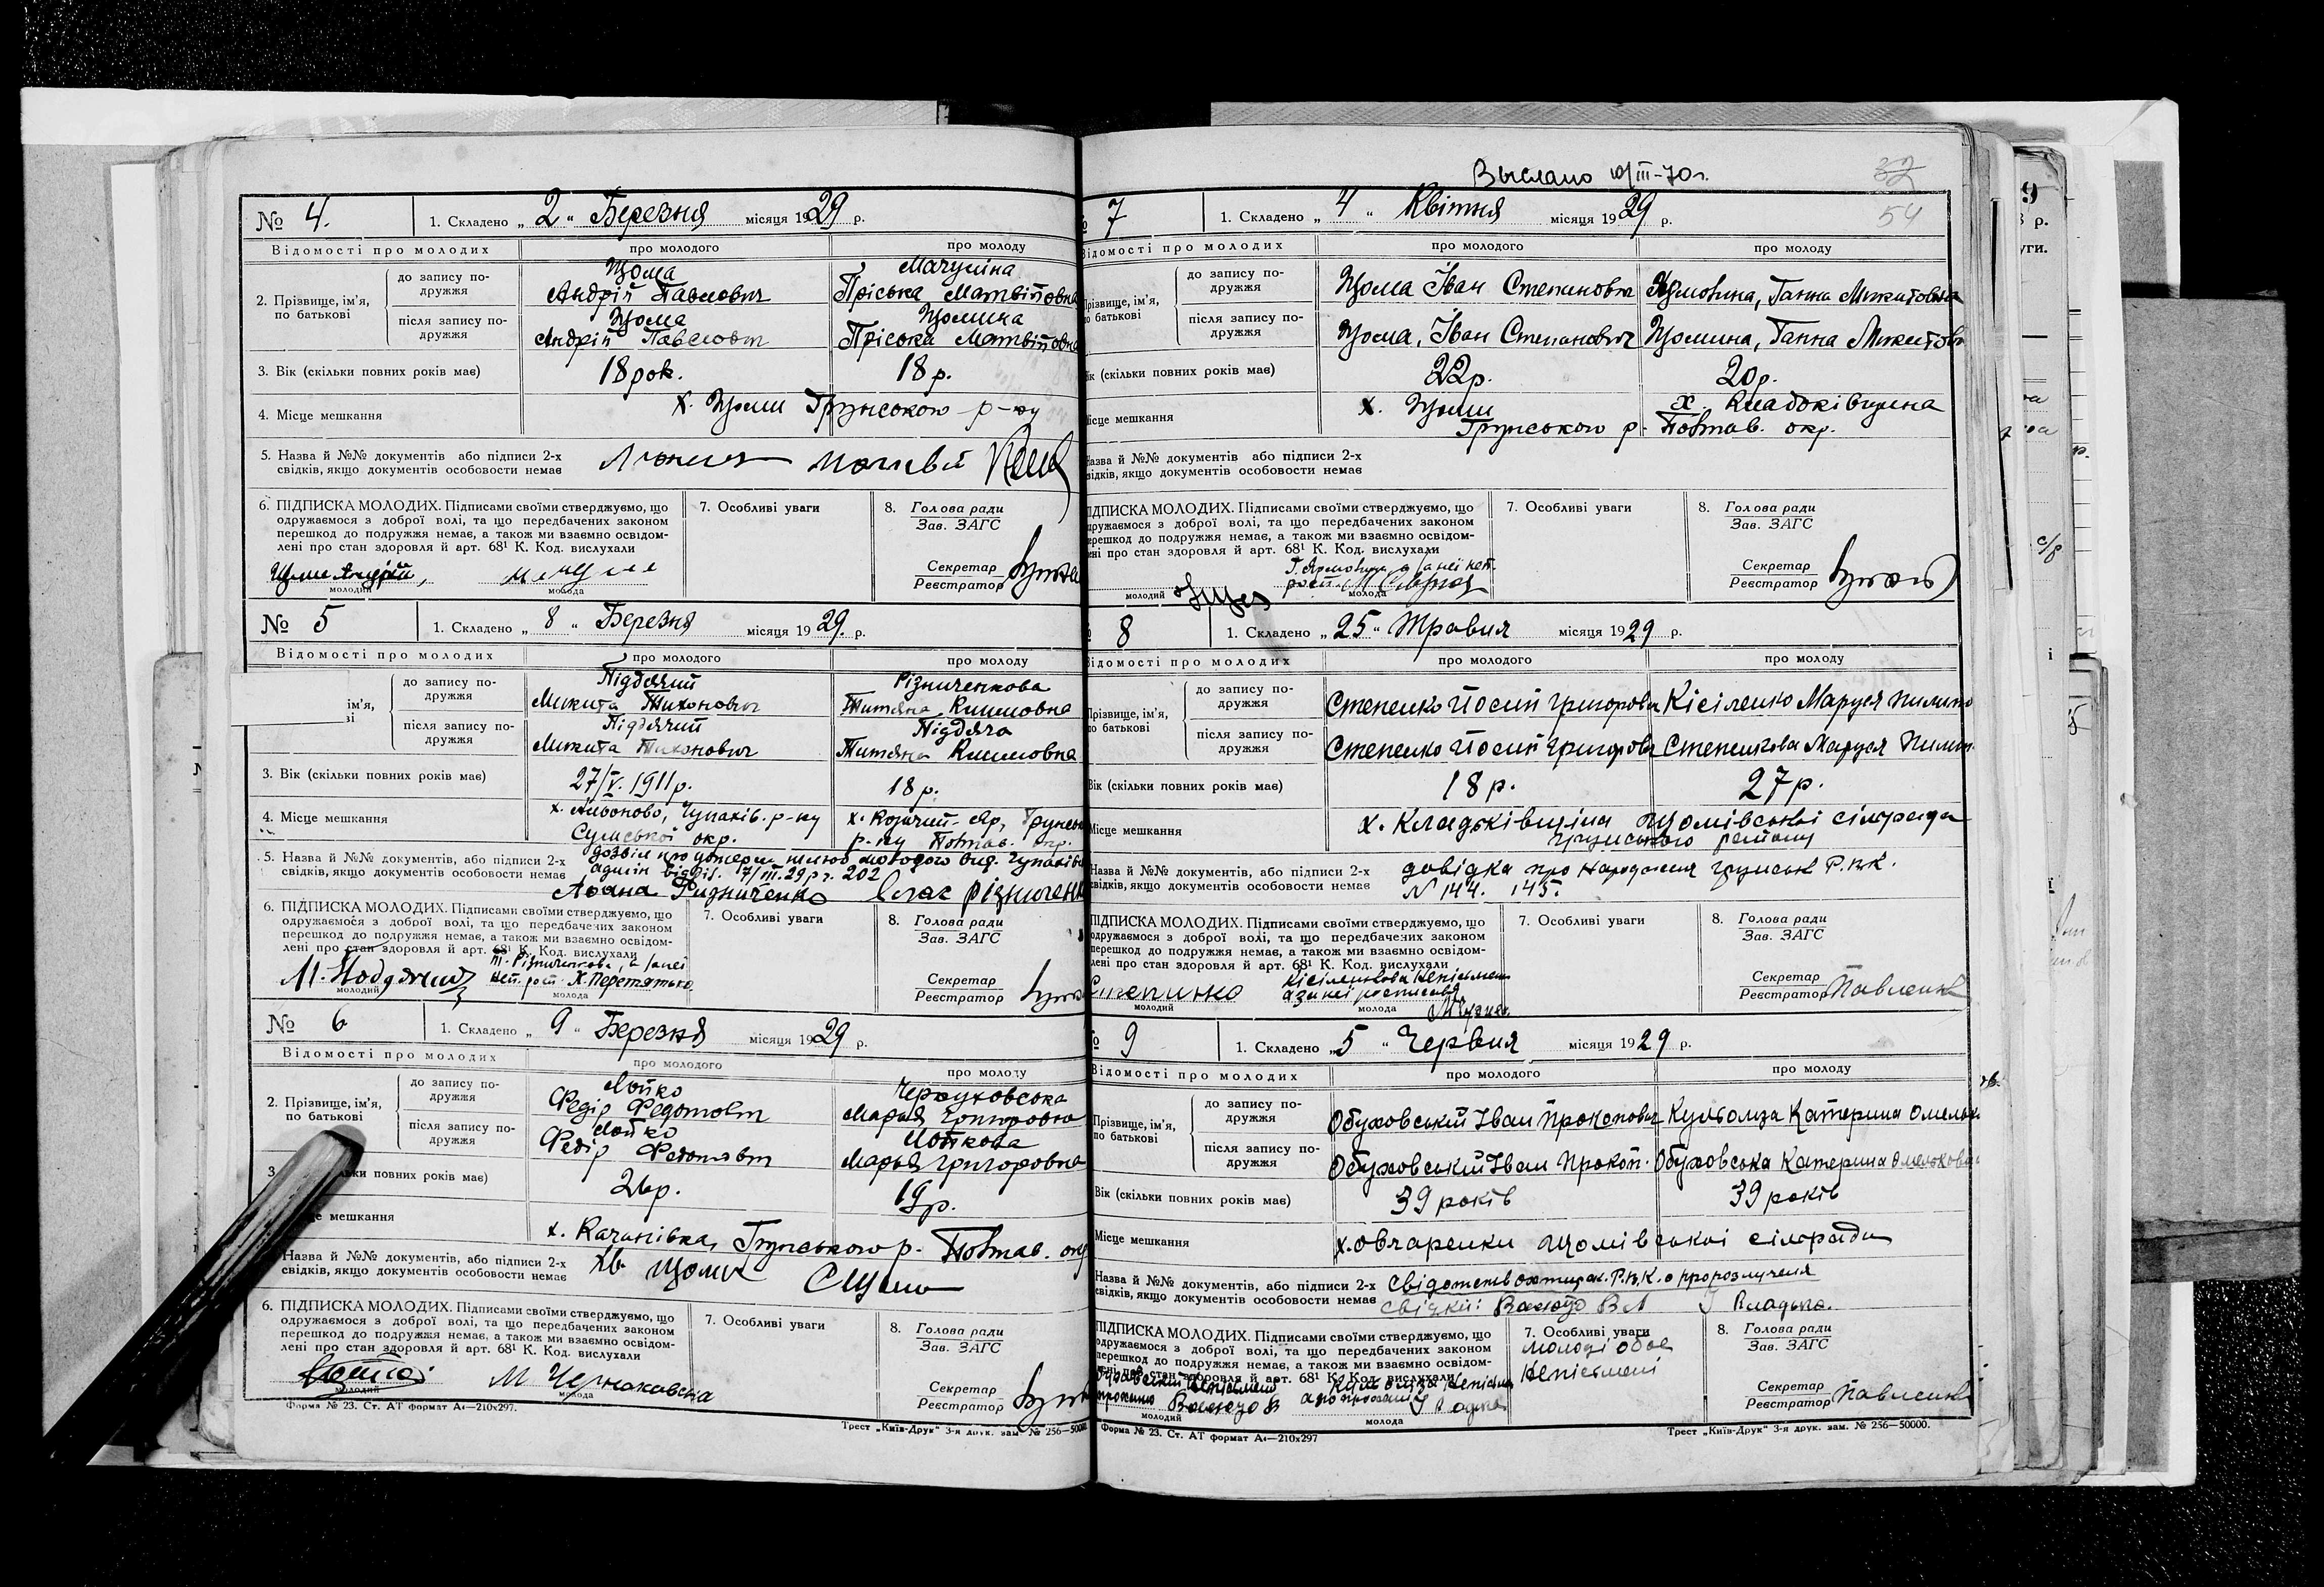 № 4. 1. Складено „ 2 “ Березня місяця 1929 р.
Відомості про молодих про молодого про молоду
2. Прізвище, ім'я, по батькові
до запису по-
дружжя
Цьома
Андрій Павлович
Пріська Матвіївна
після запису по-
дружжя
Цьома
Андрій Павлович
Цьомина
Пріська Матвіївна
3. Вік (скільки повних років має) 18 рок. 18 р.
4. Місце мешкання х. Цьоми Грунського р-ну
5. Назва й №№ документів або підписи 2-х
свідків, якщо документів особовости немає
6. ПІДПИСКА МОЛОДИХ. Підписами своїми стверджуємо, що
одружаємося з доброї волі, та що передбачених законом
перешкод до подружжя немає, а також ми взаємно освідом-
лені про стан здоровля й арт. 68¹ К. Код. вислухали
молодий молода
7. Особливі уваги
8. Голова ради
Зав. ЗАГС
Секретар
Реєстратор
№ 5 1. Складено „ 8 “ Березня місяця 1929. р.
Відомості про молодих про молодого про молоду
ім'я,
до запису по-
дружжя
Підд'ячий
Микита Тихонович
Різниченкова
Титяна Климовна
після запису по-
дружжя
Підд'ячий
Микита Тихонович
Підд'яча
Титяна Климовна
3. Вік (скільки повних років має) 27/V. 1911 р. 18 р.
4. Місце мешкання
Чупахів. р-ну
Сумської окр.
х. Козячий-Яр, Грунськ
р-ну Полтав. окр.
5. Назва й №№ документів, або підписи 2-х
свідків, якщо документів особовости немає
7/III.29 р. 202
Різниченко
6. ПІДПИСКА МОЛОДИХ. Підписами своїми стверджуємо, що
одружаємося з доброї волі, та що передбачених законом
перешкод до подружжя немає, а також ми взаємно освідом-
лені про стан здоровля й арт. 68¹ К. Код. вислухали
Х. Перетятько
молодий молода
7. Особливі уваги
8. Голова ради
Зав. ЗАГС
Секретар
Реєстратор
№ 6 1. Складено „ 9 “ Березня місяця 1929 р.
Відомості про молодих про молодого про молоду
2. Прізвище, ім'я,
по батькові
до запису по-
дружжя
Лойко
Федір Федотович
Марья Григоровна
після запису по-
дружжя
Лойко
Федір Федотович
Лойкова
Марья Григоровна
повних років має) 26 р. 19 р.
мешкання х. Качанівка, Грунського р. Полтав. окр
Назва й №№ документів, або підписи 2-х
свідків, якщо документів особовости немає
6. ПІДПИСКА МОЛОДИХ. Підписами своїми стверджуємо, що
одружаємося з доброї волі, та що передбачених законом
перешкод до подружжя немає, а також ми взаємно освідом-
лені про стан здоровля й арт. 68¹ К. Код. вислухали
молодий молода
7. Особливі уваги
8. Голова ради
Зав. ЗАГС
Секретар
Реєстратор
Форма № 23. Ст. АТ формат А4—210х297.
Трест „Київ-Друк“ 3-я друк. зам. № 256—50000
Выслано 10/III-70 г.
32
54
7 1. Складено „ 4 “ Квітня місяця 1929 р.
Відомості про молодих про молодого про молоду
Прізвище, ім'я,
по батькові
до запису по-
дружжя
Цьома Іван Степанович
Ганна Микитовна
після запису по-
дружжя
Цьома, Іван Степанович Цьомина, Ганна Микитов
Вік (скільки повних років має) 22 р. 20 р.
Місце мешкання х. Цьоми х. Кладьківщина
Грунського р. Полтав. окр.
Назва й №№ документів або підписи 2-х
свідків, якщо документів особовости немає
ПІДПИСКА МОЛОДИХ. Підписами своїми стверджуємо, що
одружаємося з доброї волі, та що передбачених законом
перешкод до подружжя немає, а також ми взаємно освідом-
лені про стан здоровля й арт. 68¹ К. Код. вислухали
молодий молода
7. Особливі уваги
8. Голова ради
Зав. ЗАГС
Секретар
Реєстратор
8 1. Складено „ 25 “ Травня місяця 1929 р.
Відомості про молодих про молодого про молоду
Прізвище, ім'я,
по батькові
до запису по-
дружжя
Степенко Йосип Григорови Кісіленко Маруся Пилипо
після запису по-
дружжя
Степенко Йосип Григорови Степенкова Маруся Пилип.
Вік (скільки повних років має) 18 р. 27 р.
Місце мешкання х. Кладьківщина Цьомівської сільради
Грунського району
Назва й №№ документів, або підписи 2-х
свідків, якщо документів особовости немає
довідка про народження Грунськ Р.В.К.
№ 144. 145.
ПІДПИСКА МОЛОДИХ. Підписами своїми стверджуємо, що
одружаємося з доброї волі, та що передбачених законом
перешкод до подружжя немає, а також ми взаємно освідом-
лені про стан здоровля й арт. 68¹ К. Код. вислухали
молодий молода
7. Особливі уваги
8. Голова ради
Зав. ЗАГС
Секретар
Реєстратор Павленко
9 1. Складено „ 5 “ Червня місяця 1929 р.
Відомості про молодих про молодого про молоду
Прізвище, ім'я,
по батькові
до запису по-
дружжя
Обуховський Іван Прокопович Кульбміза Катерина Омельк
після запису по-
дружжя
Обуховський Іван Прокоп. Обуховська Катерина Омелькова
Вік (скільки повних років має) 39 років 39 років
Місце мешкання х. Овчаренки Цьомівської сільради
Назва й №№ документів, або підписи 2-х
свідків, якщо документів особовости немає
свідки:
ПІДПИСКА МОЛОДИХ. Підписами своїми стверджуємо, що
одружаємося з доброї волі, та що передбачених законом
перешкод до подружжя немає, а також ми взаємно освідом-
лені про стан здоровля й арт. 68¹ К. Код. вислухали
молодий молода
7. Особливі уваги
молоді обоє
непісьмені
8. Голова ради
Зав. ЗАГС
Секретар
Реєстратор Павленко
Форма № 23. Ст. АТ формат А4—210х297
Трест „Київ-Друк“ 3-я друк. зам. № 256—50000.